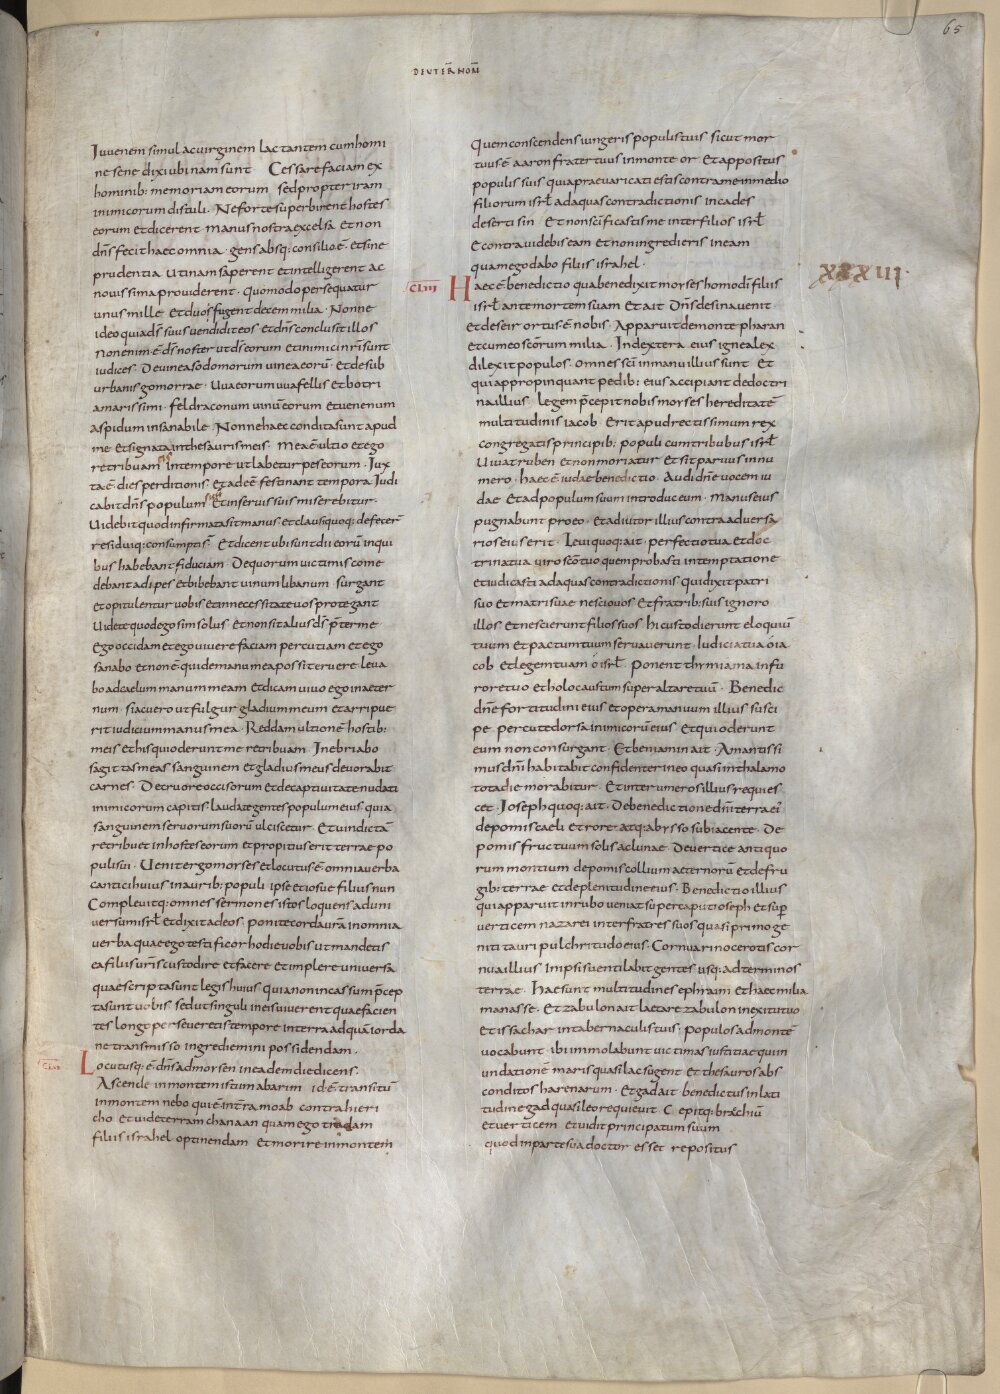 65
DEUTERNOM̄
Iuvenem simul ac virginem lactantem cum homi
ne sene dixi ubinam sunt Cessare faciam ex
hominib: memoriam eorum sed propter iram
inimicorum distuli. Ne forte superbirent hostes
eorum et dicerent manus nostra excelsa et non
dn̄s fecit haec omnia. gens absq: consilio ē. et sine
prudentia utinam saperent et intelligerent ac
novissima providerent. quomodo persequatur
unus mille et duo fugent decem milia. Nonne
ideo quia dn̄s suus vendidit eos et dn̄s conclusit illos
Non enim ē dn̄s noster ut dn̄s eorum et inimici nr̄i sunt
iudices. De vinea sodomorum vinea eorū. et de sub
urbanis gomorrae. Uva eorum uva fellis et botri
amarissimi. fel draconum vinū eorum et venenum
aspidum insanabile. Nonne haec condita sunt apud
me et signata in thesauris meis. Mea ē ultio et ego
retribuam eis in tempore ut labetur pes eorum. Iux
ta ē dies perditionis et adeē festinant tempora. Iudi
cabit dn̄s populum suū et in servis suis miserebitur.
Uidebit quod infirmata sit manus et clausi quoq: defecer̄
residuiq: consumpti s̄. Et dicent ubi sunt dii eorū in qui
bus habebant fiduciam. De quorum victimis come
debant adipes et bibebant vinum libanum surgant
et opitulentur vobis et in necessitate vos protegant
Uidete quod ego sim solus et non sit alius ds̄ p̄ter me
Ego occidam et ego vivere faciam percutiam et ego
sanabo et non ē qui de manu mea possit eruere. leva
bo ad caelum manum meam et dicam vivo ego in aeter
num. si acuero ut fulgur gladium meum et arripue
rit iudicium manus mea. Reddam ultionē hostib:
meis et his qui oderunt me retribuam. Inebriabo
sagittas meas sanguinem et gladius meus devorabit
carnes. De cruore occisorum et de captivitate nudati
inimicorum capitis. laudate gentes populum eius quia
sanguinem servorum suorū ulciscetur. Et vindictā
retribuet in hostes eorum et propitius erit terrae po
puli sui. Uenit ergo morses et locutus ē omnia verba
cantici huius in aurib: populi ipse et iosue filius nun
Complevitq: omnes sermones istos loquens ad uni
versum isrl̄ et dixit ad eos. ponite corda ur̄a in omnia
verba quae ego testificor hodie vobis ut mandetis
ea filiis ur̄is custodire et facere et implere universa
quae scripta sunt legis huius quia non in cassum p̄cep
ta sunt vobis sed ut singuli in eis viverent quae facien
tes longo perseveretis tempore in terra ad quā iorda
ne transmisso ingredimini possidendam.
Locutusq: ē dn̄s ad morsen in eadem die dicens.
Ascende in montem istum abarim id ē transitū
in montem nebo qui ē in terra moab contra hieri
cho et vide terram chanaan quam ego tradam
filiis israhel optinendam et morire in montem
Quem conscendens iungeris populis tuis sicut mor
tuus ē aaron frater tuus in monte or et appositus
populis suis quia praevaricati estis contra me in medio
filiorum isrl̄ ad aquas contradictionis in cades
deserti sin. Et non sc̄ificastis me inter filios isrl̄
E contra videbis eam et non ingredieris in eam
quam ego dabo filiis israhel.
CLIIII Haec ē benedictio qua benedixit morses homo dī filiis
isrl̄ ante mortem suam et ait. Dn̄s de sina venit
et de seir ortus ē nobis. Apparuit de monte pharan
et cum eo sc̄orum milia. In dextera eius ignea lex
dilexit populos. omnes sc̄i in manu illius sunt et
qui appropinquant pedib: eius accipiant de doctri
na illius. legem p̄cepit nobis morses hereditatē
multitudinis iacob. Erit apud rectissimum rex
congregatis principib: populi cum tribubus isrl̄
Uivat ruben et non moriatur et sit parvus in nu
mero. haec ē iudae benedictio. Audi dn̄e vocem iu
dae et ad populum suum introduc eum. Manus eius
pugnabunt pro eo. et adiutor illius contra adversa
rios eius erit. Levi quoq: ait. perfectio tua et doc
trina tua viro sc̄o tuo quem probasti in temptatione
et iudicasti ad aquas contradictionis qui dixit patri
suo et matri suae nescio vos et fratrib: suis ignoro
illos et nescierunt filios suos hi custodierunt eloquiū
tuum et pactum tuum servaverunt. Iudicia tua o ia
cob et legem tuam o isrl̄. Ponent thymiama in fu
rore tuo et holocaustum super altare tuū. Benedic
dn̄e fortitudini eius et opera manuum illius susci
pe percute dorsa inimicorū eius et qui oderunt
eum non consurgant. Et beniamin ait. Amantissi
mus dn̄i habitabit confidenter in eo quasi in thalamo
tota die morabitur et inter umeros illius requies
cet. Ioseph quoq: ait. De benedictione dn̄i terra ei'
de pomis caeli et rore atq: abysso subiacente. De
pomis fructuum solis ac lunae. De vertice antiquo
rum montium de pomis collium aeternorū et de fru
gib: terrae et de plenitudine eius. Benedictio illius
qui apparuit in rubo veniat super caput ioseph et sup̄
verticem nazarei inter fratres suos quasi primoge
niti tauri pulchritudo eius. Cornua rinocerotis cor
nua illius In ipsis ventilabit gentes usq: ad terminos
terrae. Hae sunt multitudines ephraim et haec milia
manasse. Et zabulon ait laetare zabulon in exitu tuo
et issachar in tabernaculis tuis. populos ad montē
vocabunt. ibi immolabunt victimas iustitiae qui in
undationē maris quasi lac sugent et thesauros abs
conditos harenarum. Et gad ait benedictus in lati
tudine gad quasi leo requievit. Cepitq: brachiū
et verticem et vidit principatum suum
quod in parte sua doctor esset repositus
XXXIII.